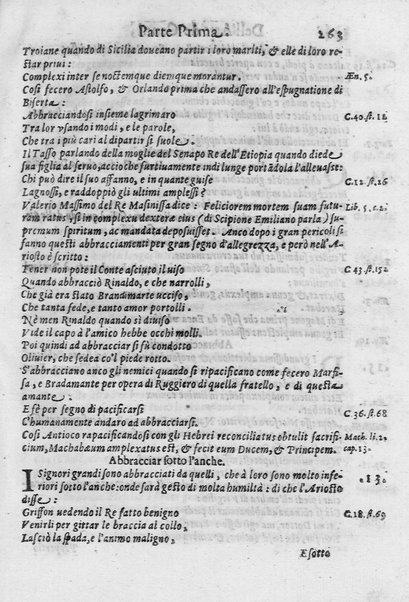 Parte Prima. 263
Troiane quando di Sicilia doueano partir i loro mariti, & elle di loro re
star priue:
Complexi inter se noctemque diemque morantur. Æn. 5.
Cosi fecero Astolfo, & Orlando prima che andassero all'espugnatione di
Biserta:
Abbracciandosi insieme lagrimaro C.40.st.12.
Tra lor vsando i modi, e le parole,
Che tra i più cari al dipartir si suole.
Il Tasso parlando della moglie del Senapo Re dell'Etiopia quando diede
sua figlia al seruo, acciò che furtiuamente indi lunge portãdola l'alleuasse:
Chi può dire il suo affanno, e in quante guise C.12.st.26
Lagnossi, e raddoppiò gli ultimi amplessi?
Valerio Massimo del Re Masinissa dice: Feliciorem mortem suam futu- Lib. 5. c.2.
ram ratus, si in complexu dexteræ eius (di Scipione Emiliano parla) su-
premum spiritum, ac mandata deposuisset. Anco dopo i gran pericoli si
fanno questi abbracciamenti per gran segno d'allegrezza, e però nell'A-
riosto è scritto:
Tener non pote il Conte asciuto il uiso C. 43.st.152.
Quando abbracciò Rinaldo, e che narrolli,
Che già era stato Brandimarte ucciso,
Che tanta fede, e tanto amor portolli.
Nè men Rinaldo quando sì diuiso
Vide il capo à l'amico hebbe occhi molli.
Poi quindi ad abbracciar si fù condotto
Oliuier, che sedea co'l piede rotto.
S'abbracciano anco gli nemici quando si ripacificano come fecero Marfi-
sa, e Bradamante per opera di Ruggiero di quella fratello, e di questa
amante.
E sè per segno di pacificarsi C.36.st.68
C'humanamente andaro ad abbracciarsi.
Cosi Antioco rapacificandosi con gli Hebrei reconciliatus obtulit sacrifi- Mach. li.2.
cium, Machabæum amplexatus est, & fecit eum Ducem, & Principem. cap.13.
Abbracciar sotto l'anche.
I Signori grandi sono abbracciati da quelli, che à loro sono molto infe- 13.
riori sotto l'anche: onde sarà gesto di molta humiltà: di che l'Ariosto
disse:
Griffon uedendo il Re fatto benigno C.18.st.69
Venirli per gittar le braccia al collo,
Lasciò la spada, e l'animo maligno,
E sotto